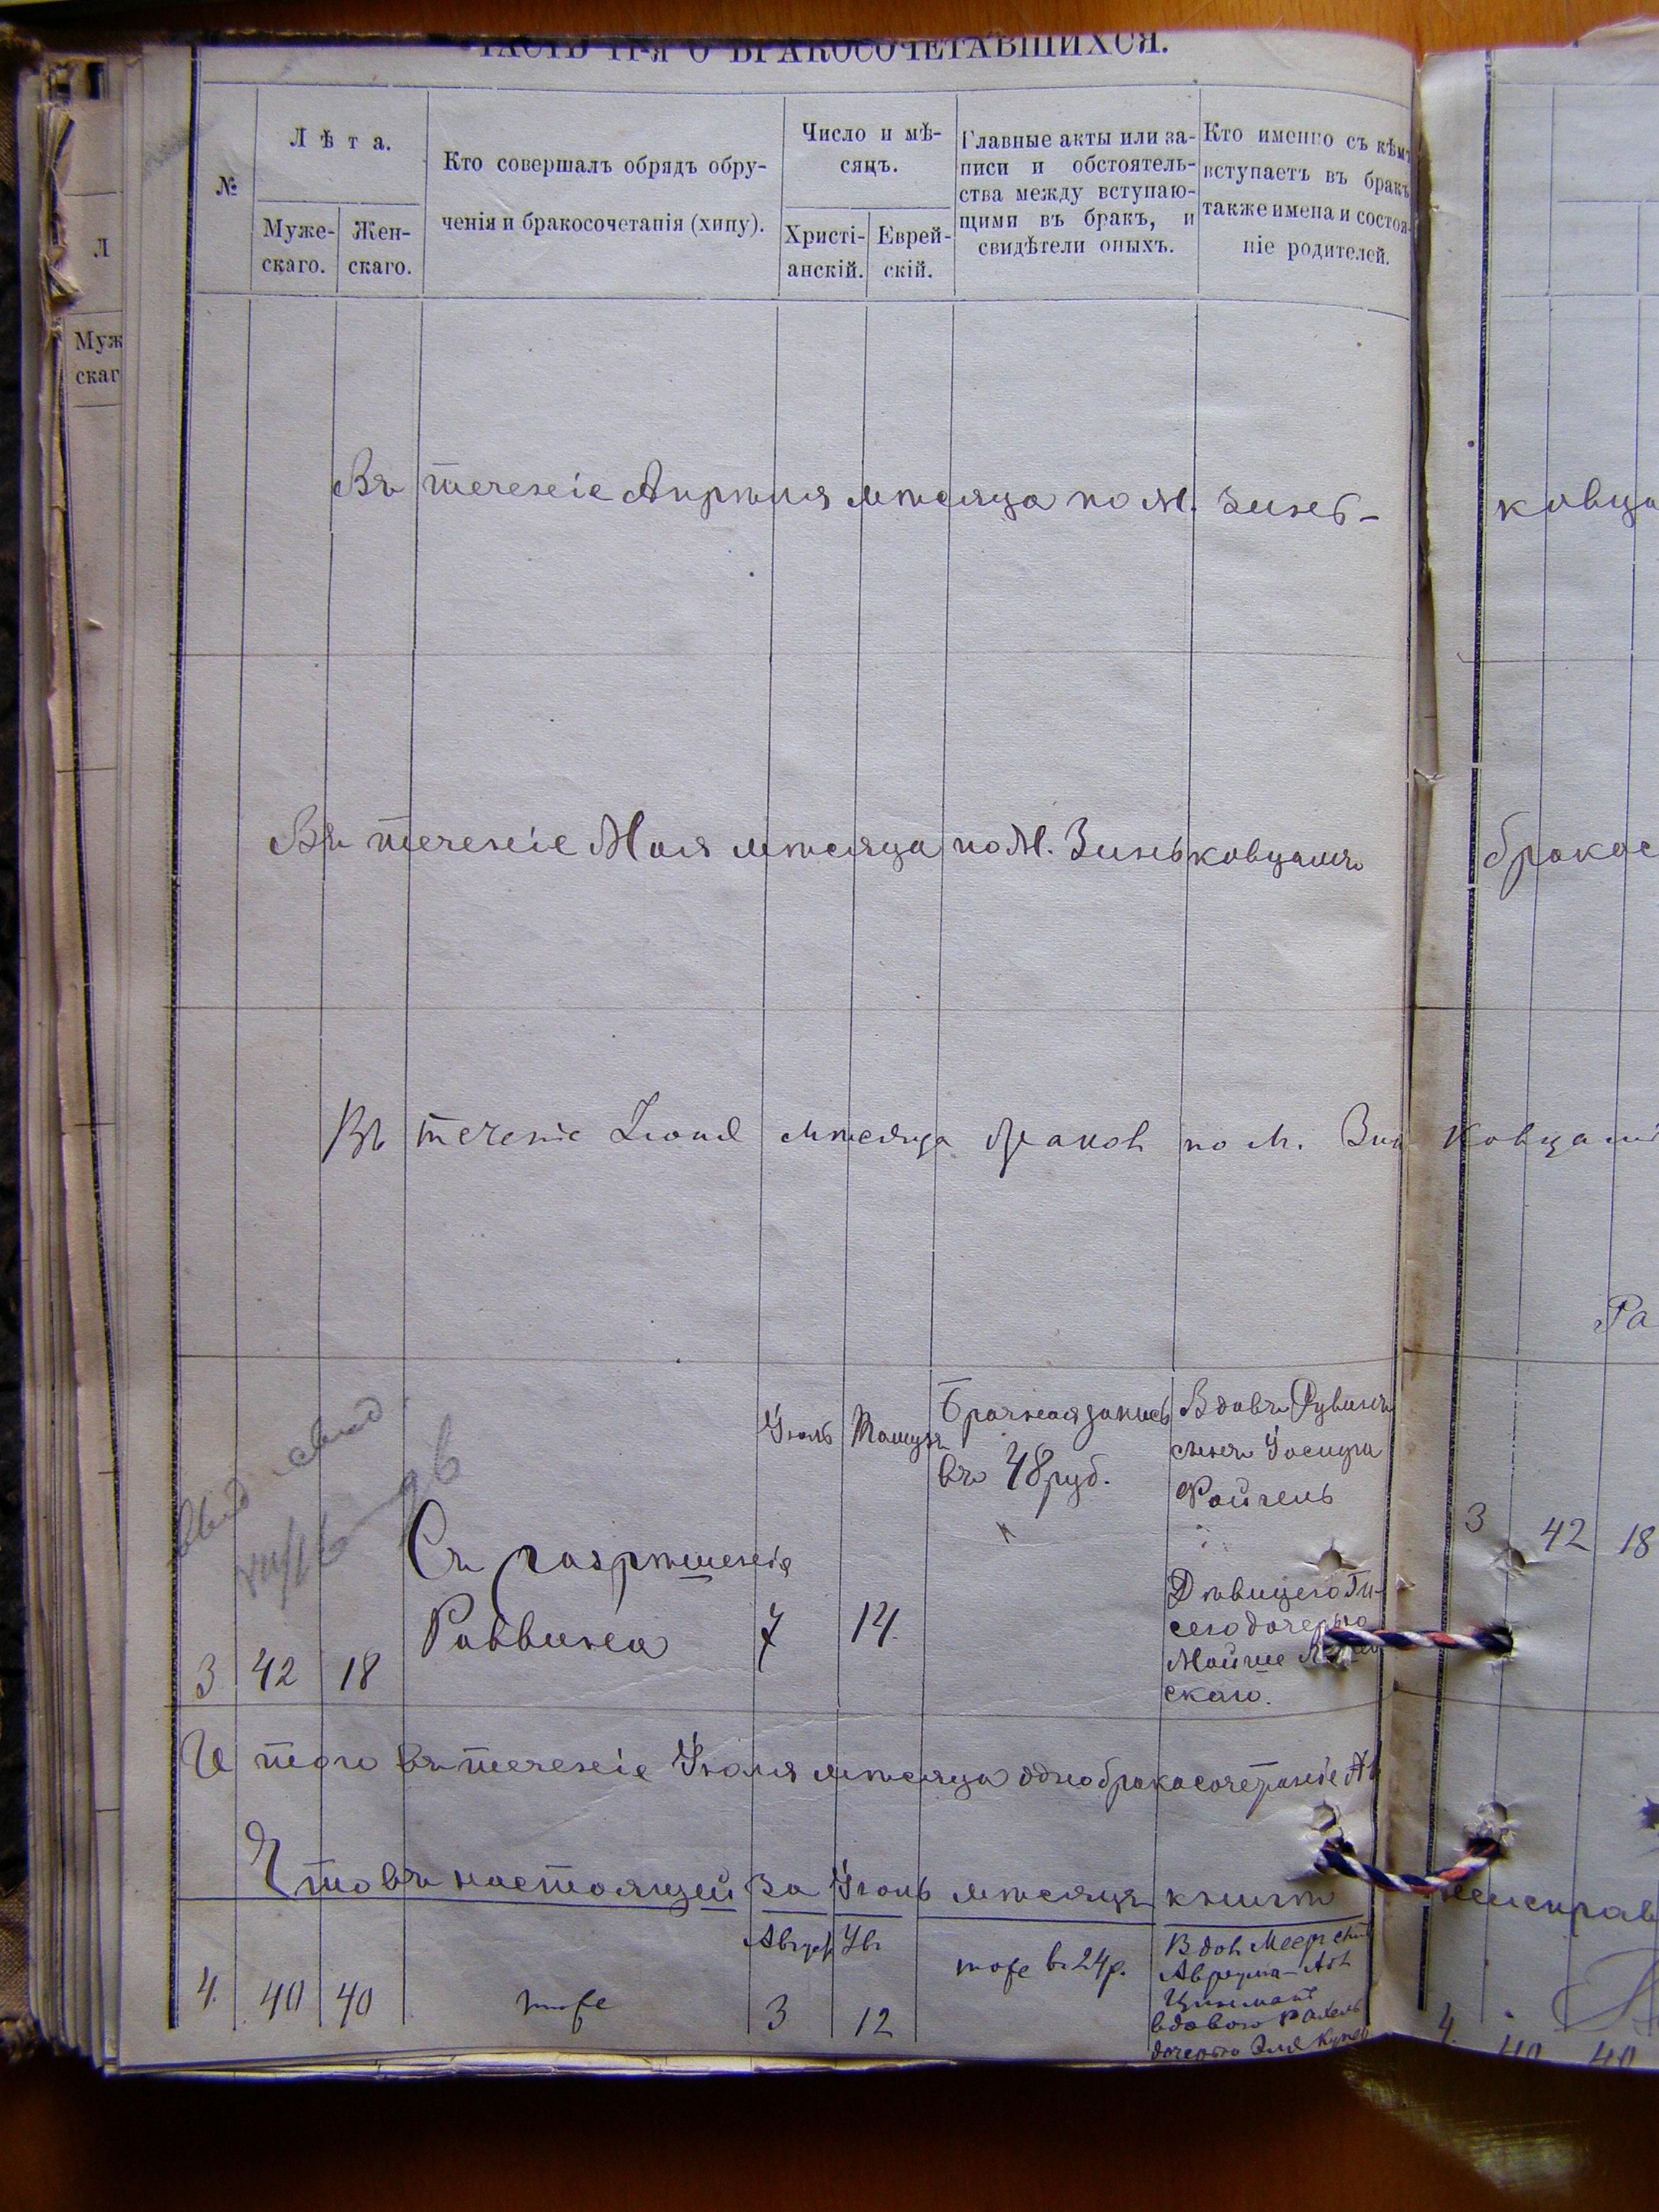 ЧАСТЬ II-я О БРАКОСОЧЕТАВШИХСЯ.
№
Лѣта.
Муже-
скаго.
Жен-
скаго.
Кто совершалъ обрядъ обру-
ченія и бракосочетанія (хипу).
Число и мѣ-
сяцъ.
Христі-
анскій.
Еврей-
скій.
Главные акты или за-
писи и обстоятель-
ства между вступаю-
щими въ бракъ, и
свидѣтели оныхъ.
Кто именно съ кѣмъ
вступаетъ въ бракъ
также имена и состоя-
ніе родителей.
Л
Муж
скаг
Въ теченіе Апрѣля мѣсяца по М. Зинь-
ковца
Въ теченіе Мая мѣсяца по М. Зиньковцамъ
бракос
Въ теченіе Іюня мѣсяца браковъ по М. Зин
ковцамъ
Ра
3
42
18
Съ разрѣшенія
Раввина
Іюль
7
Тамузъ
14.
Брачная запись
въ 48 руб.
Вдовъ Рувинъ
сынъ Іосифа
Ройчель
Дѣвицею Ги-
сею дочерью
Мойше
скаго.
3
42
18
И того въ теченіе Іюля мѣсяца одно бракосочетаніе
Что въ настоящей за Іюль мѣсяцъ книгѣ
неисправ
4.
40
40
тоже
Август
3
12
тоже въ 24 р.
Вдов. Мееръ сынъ
Авраума-
вдовою Рахель
дочерью
4.
40
40